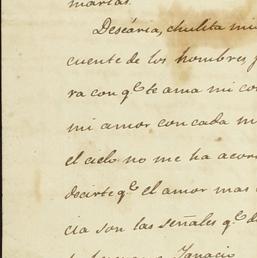 Desearia, chulita mi
cuente de los hombres,
ra con qe. te ama mi co
mi amor con cada m
el cielo no me ha acor
decirte qe. el amor mas
cia son las señales qe. d
Ignacio